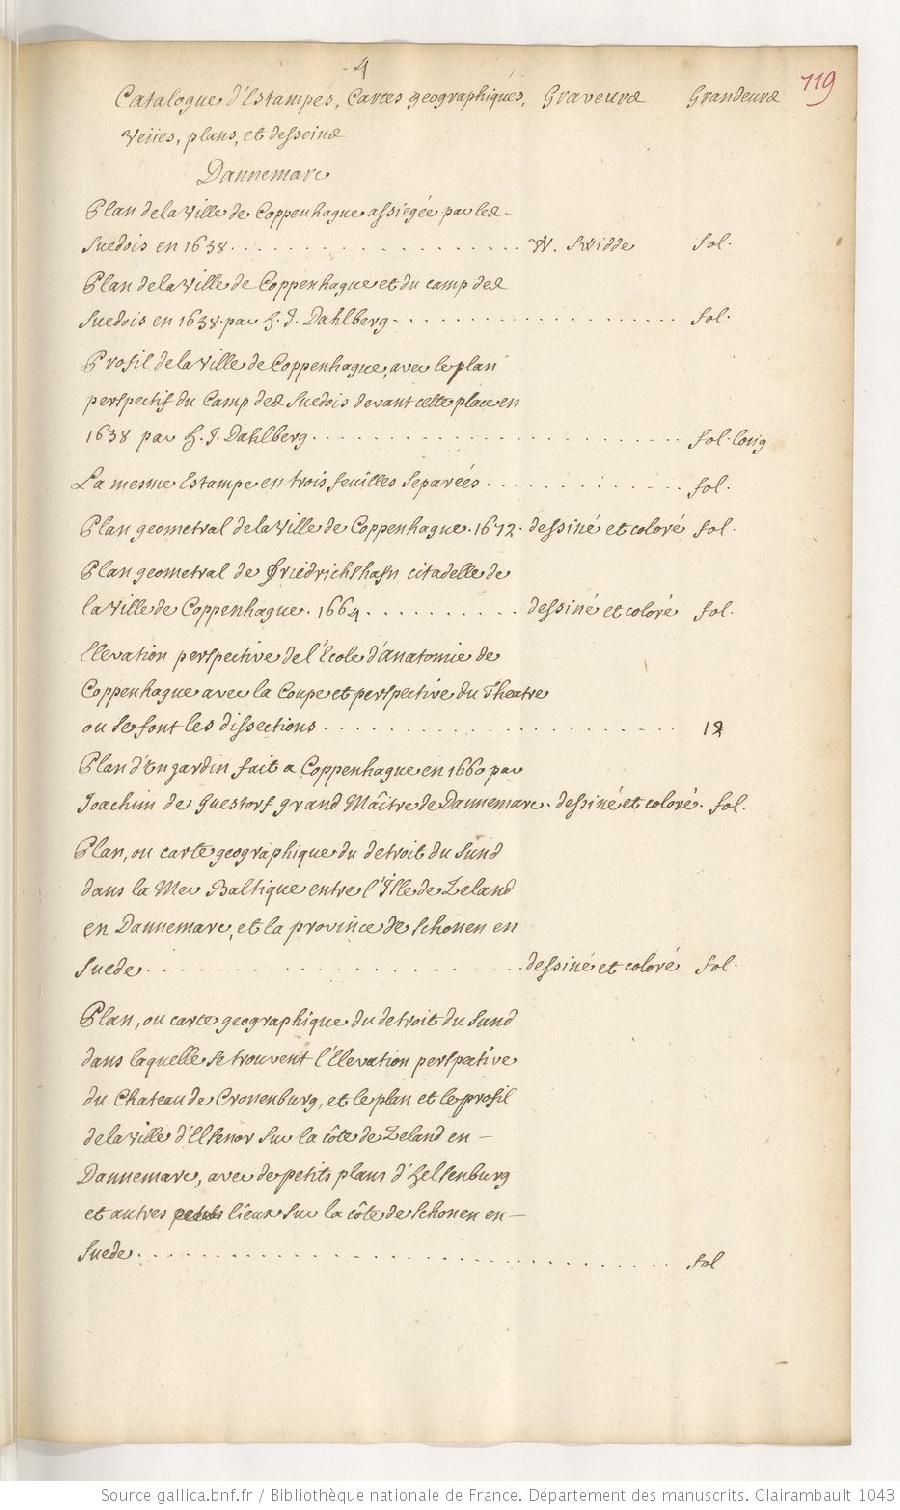 4
119
Catalogue d'Estampes, Cartes geographiques, Graveurs Grandeurs
Veües, plans, et desseins
Dannemarc
Plan de la Ville de Coppenhague assiegée par les
Suedois en 1638. W. Swidde fol.
Plan de la Ville de Coppenhague et du camp des
Suedois en 1638. par E. J. Dahlberg. fol.
Profil de la Ville de Coppenhague, avec le plan
perspectif du Camp des Suedois devant cette place en
1638 par E. J. Dahlberg. fol. long
La mesme Estampe en trois feuilles Separées fol.
Plan geometral de la Ville de Coppenhague. 1672. dessiné et coloré fol.
Plan geometral de Friedrichshafn citadelle de
la Ville de Coppenhague. 1664. dessiné et coloré fol.
Elevation perspective de l'Ecole d'anatomie de
Coppenhague avec la Coupe et perspective du Theatre
ou se font les dissections 12
Plan d'Un jardin fait a Coppenhague en 1660 par
Joachim de Guestorf grand Maître de Dannemarc. dessiné et coloré. fol.
Plan, ou carte geographique du detroit du Sund
dans la Mer Baltique entre l'Ille de Zeland
en Dannemarc, et la province de Schonen en
Suede. dessiné et coloré fol.
Plan, ou carte geographique du detroit du Sund
dans laquelle se trouvent l'Elevation perspective
du Chateau de Cronenburg, et le plan et le profil
de la Ville d'Elsenor sur la côte de Zeland en
Dannemarc, avec de petits plans d'Helsenburg
et autres petits lieux sur la côte de Schonen en
Suede. fol
Source gallica.bnf.fr / Bibliothèque nationale de France. Département des manuscrits. Clairambault 1043